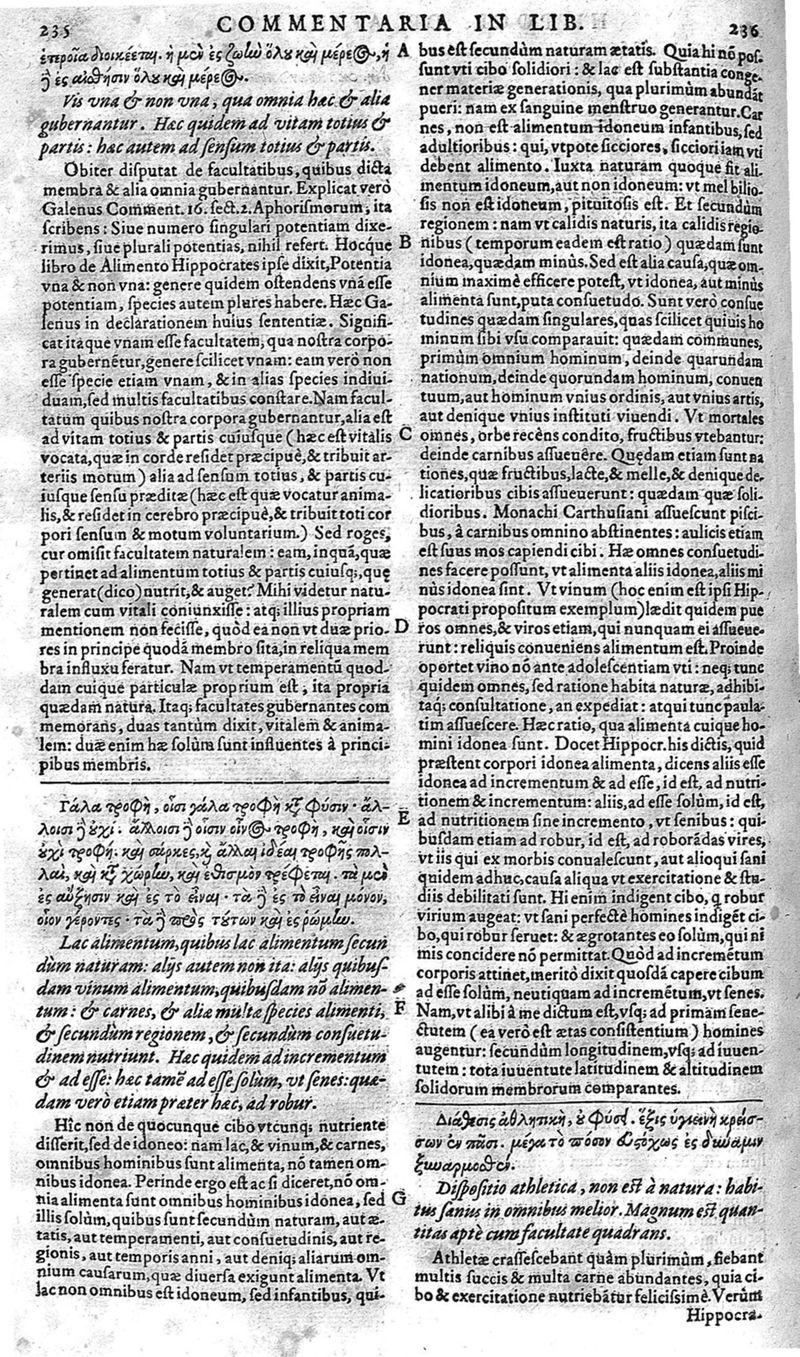 235
COMMENTARIA IN LIB.
236
ἑτεροῖα διοικέεται. ἡ μὲν ἐς ζωὴν ὅλου καὶ μέρεος, ἡ
δὲ ἐς αἴσθησιν ὅλου καὶ μέρεος.
Vis vna & non vna, qua omnia hæc & alia
gubernantur. Hæc quidem ad vitam totius &
partis: hæc autem ad sensum totius & partis.
Obiter disputat de facultatibus, quibus dicta
membra & alia omnia gubernantur. Explicat verò
Galenus Comment. 16. sect. 2. Aphorismorum, ita
scribens: Siue numero singulari potentiam dixe-
rimus, siue plurali potentias, nihil refert. Hocque
libro de Alimento Hippocrates ipse dixit, Potentia
vna & non vna: genere quidem ostendens vnā esse
potentiam, species autem plures habere. Hæc Ga-
lenus in declarationem huius sententiæ. Signifi-
cat itaque vnam esse facultatem, qua nostra corpo-
ra gubernētur, genere scilicet vnam: eam verò non
esse specie etiam vnam, & in alias species indiui-
duam, sed multis facultatibus constare. Nam facul-
tatum quibus nostra corpora gubernantur, alia est
ad vitam totius & partis cuiusque (hæc est vitalis
vocata, quæ in corde residet præcipuè, & tribuit ar-
teriis motum) alia ad sensum totius, & partis cu-
iusque sensu præditæ (hæc est quæ vocatur anima-
lis, & residet in cerebro præcipuè, & tribuit toti cor
pori sensum & motum voluntarium.) Sed roges,
cur omisit facultatem naturalem: eam, inquā, quæ
pertinet ad alimentum totius & partis cuiusq;, quę
generat (dico) nutrit, & auget? Mihi videtur natu-
ralem cum vitali coniunxisse: atq; illius propriam
mentionem non fecisse, quòd ea non vt duæ prio-
res in principe quodā membro sita, in reliqua mem
bra influxu feratur. Nam vt temperamentū quod-
dam cuique particulæ proprium est, ita propria
quædam natura. Itaq; facultates gubernantes com
memorans, duas tantùm dixit, vitalem & anima-
lem: duæ enim hæ solùm sunt influentes à princi-
pibus membris.
Γάλα τροφὴ, οἷσι γάλα τροφὴ κτ' φύσιν· ἄλ-
λοισι δὲ οὐχί· ἄλλοισι δὲ οἷσιν οἶνος τροφὴ, καὶ οἷσιν
οὐχὶ τροφή· καὶ σάρκες, καὶ ἄλλαι ἰδέαι τροφῆς πολ-
λαὶ, καὶ κτ' χώρην, καὶ ἐθισμὸν τρέφεται. τὰ μὲν
ἐς αὔξησιν καὶ ἐς τὸ εἶναι· τὰ δὲ ἐς τὸ εἶναι μόνον,
οἷον γέροντες· τὰ δὲ πρὸς τούτων καὶ ἐς ῥώμην.
Lac alimentum, quibus lac alimentum secun
dùm naturam: alijs autem non ita: alijs quibus-
dam vinum alimentum, quibusdam nō alimen-
tum: & carnes, & aliæ multæ species alimenti,
& secundùm regionem, & secundùm consuetu-
dinem nutriunt. Hæc quidem ad incrementum
& ad esse: hæc tamē ad esse solùm, vt senes: quæ-
dam verò etiam præter hæc, ad robur.
Hîc non de quocunque cibo vtcunq; nutriente
disserit, sed de idoneo: nam lac, & vinum, & carnes,
omnibus hominibus sunt alimenta, nō tamen om-
nibus idonea. Perinde ergo est ac si diceret, nō om-
nia alimenta sunt omnibus hominibus idonea, sed
illis solùm, quibus sunt secundùm naturam, aut æ-
tatis, aut temperamenti, aut consuetudinis, aut re-
gionis, aut temporis anni, aut deniq; aliarum om-
nium causarum, quæ diuersa exigunt alimenta. Vt
lac non omnibus est idoneum, sed infantibus, qui-
A
B
C
D
E
F
G
bus est secundùm naturam ætatis. Quia hi nō pos-
sunt vti cibo solidiori: & lac est substantia conge-
ner materiæ generationis, qua plurimùm abundāt
pueri: nam ex sanguine menstruo generantur. Car
nes, non est alimentum idoneum infantibus, sed
adultioribus: qui, vtpote sicciores, sicciori iam vti
debent alimento. Iuxta naturam quoque fit ali-
mentum idoneum, aut non idoneum: vt mel bilio-
sis non est idoneum, pituitosis est. Et secundùm
regionem: nam vt calidis naturis, ita calidis regio-
nibus (temporum eadem est ratio) quædam sunt
idonea, quædam minùs. Sed est alia causa, quæ om-
nium maximè efficere potest, vt idonea, aut minùs
alimenta sunt, puta consuetudo. Sunt verò consue
tudines quædam singulares, quas scilicet quiuis ho
minum sibi vsu comparauit: quædam communes,
primùm omnium hominum, deinde quarundam
nationum, deinde quorundam hominum, conuen
tuum, aut hominum vnius ordinis, aut vnius artis,
aut denique vnius instituti viuendi. Vt mortales
omnes, orbe recèns condito, fructibus vtebantur:
deinde carnibus assueuêre. Quędam etiam sunt na
tiones, quæ fructibus, lacte, & melle, & denique de-
licatioribus cibis assueuerunt: quædam quæ soli-
dioribus. Monachi Carthusiani assuescunt pisci-
bus, à carnibus omnino abstinentes: aulicis etiam
est suus mos capiendi cibi. Hæ omnes consuetudi-
nes facere possunt, vt alimenta aliis idonea, aliis mi
nùs idonea sint. Vt vinum (hoc enim est ipsi Hip-
pocrati propositum exemplum) lædit quidem pue
ros omnes, & viros etiam, qui nunquam ei assueue-
runt: reliquis conueniens alimentum est. Proinde
oportet vino nō ante adolescentiam vti: neq; tunc
quidem omnes, sed ratione habita naturæ, adhibi-
taq; consultatione, an expediat: atqui tunc paula-
tim assuescere. Hæc ratio, qua alimenta cuique ho-
mini idonea sunt. Docet Hippocr. his dictis, quid
præstent corpori idonea alimenta, dicens aliis esse
idonea ad incrementum & ad esse, id est, ad nutri-
tionem & incrementum: aliis, ad esse solùm, id est,
ad nutritionem sine incremento, vt senibus: qui-
busdam etiam ad robur, id est, ad roborādas vires,
vt iis qui ex morbis conualescunt, aut alioqui sani
quidem adhuc, causa aliqua vt exercitatione & stu-
diis debilitati sunt. Hi enim indigent cibo, q robur
virium augeat: vt sani perfectè homines indigēt ci-
bo, qui robur seruet: & ægrotantes eo solùm, qui ni
mis concidere nō permittat. Quòd ad incremētum
corporis attinet, meritò dixit quosdā capere cibum
ad esse solùm, neutiquam ad incremētum, vt senes.
Nam, vt alibi à me dictum est, vsq; ad primam sene-
ctutem (ea verò est ætas consistentium) homines
augentur: secundùm longitudinem, vsq; ad iuuen-
tutem: tota iuuentute latitudinem & altitudinem
solidorum membrorum comparantes.
Διάθεσις ἀθλητικὴ, οὐ φύσει. ἕξις ὑγιεινὴ κρείσ-
σων ἐν πᾶσι. μέγα τὸ πόσον εὐστόχως ἐς δύναμιν
ξυναρμοσθέν.
Dispositio athletica, non est à natura: habi-
tus sanius in omnibus melior. Magnum est quan-
titas aptè cum facultate quadrans.
Athletæ crassescebant quàm plurimùm, fiebant
multis succis & multa carne abundantes, quia ci-
bo & exercitatione nutriebātur felicissimè. Verùm
Hippocra-